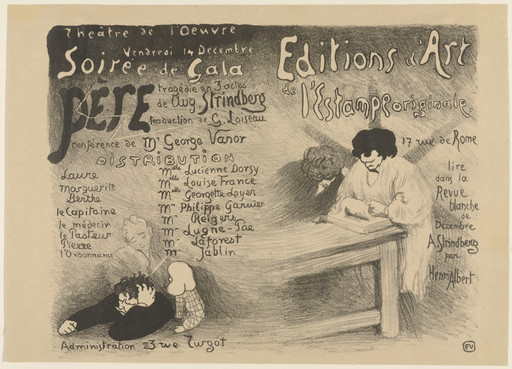 Théâtre de l'Oeuvre
Vendredi 14 Décembre
Soirée de Gala
PÈRE
tragédie en 3 actes
de Aug Strindberg
traduction de G. Loiseau
conférence de Mr George Vanor
DISTRIBUTION
Laure Mlle Lucienne Dorsy
Marguerite Mlle Louise France
Berthe Mlle Georgette Loyer
le Capitaine Mr Philippe Garnier
le médecin Mr Reigers
le Pasteur Mr Lugné-Poe
Pierre Mr Laforest
l'Ordonnance Mr Jablin
Administration 23 rue Turgot
Editions d'Art
de l'Estampe originale
17 rue de Rome
lire
dans la
Revue
blanche
de
Décembre
A Strindberg
par
Henri Albert
FV